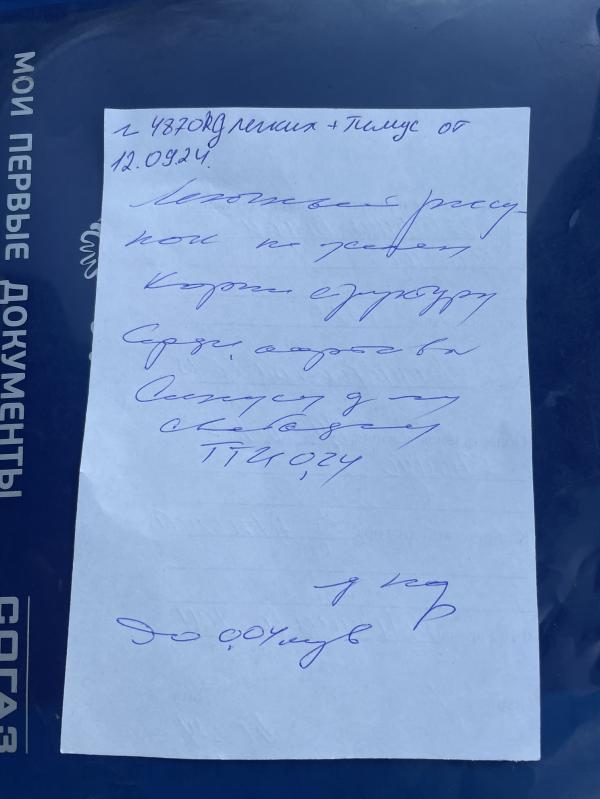 МОИ ПЕРВЫЕ ДОКУМЕНТЫ
СОГАЗ
г 4870 Rg легких + тимус от
12.09.24.
Легочный рису-
нок не изменен
Корни структурн
Сердце, аорта в н
Синусы
свободны
ТТИ 0,24
Эо 0,04 мзв